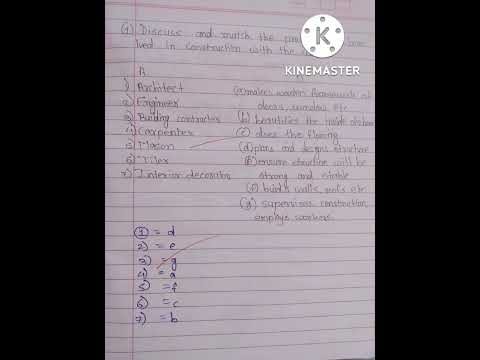 Q) Discuss and match the
lved in construction with the
KINEMASTER
A
1) Architect (a) makes wooden framework of
2) Engineer doors, windows etc
3) Building contractor (b) beautifies the inside of
4) Carpenter (c) does the flooring
5) Mason (d) plans and designs structure
6) Tiler (e) ensure structure will be
7) Interior decorator strong and stable
(f) builds walls, roofs etc
(g) supervises construction,
employs workers
1) = d
2) = e
3) = g
4) = a
5) = f
6) = c
7) = b